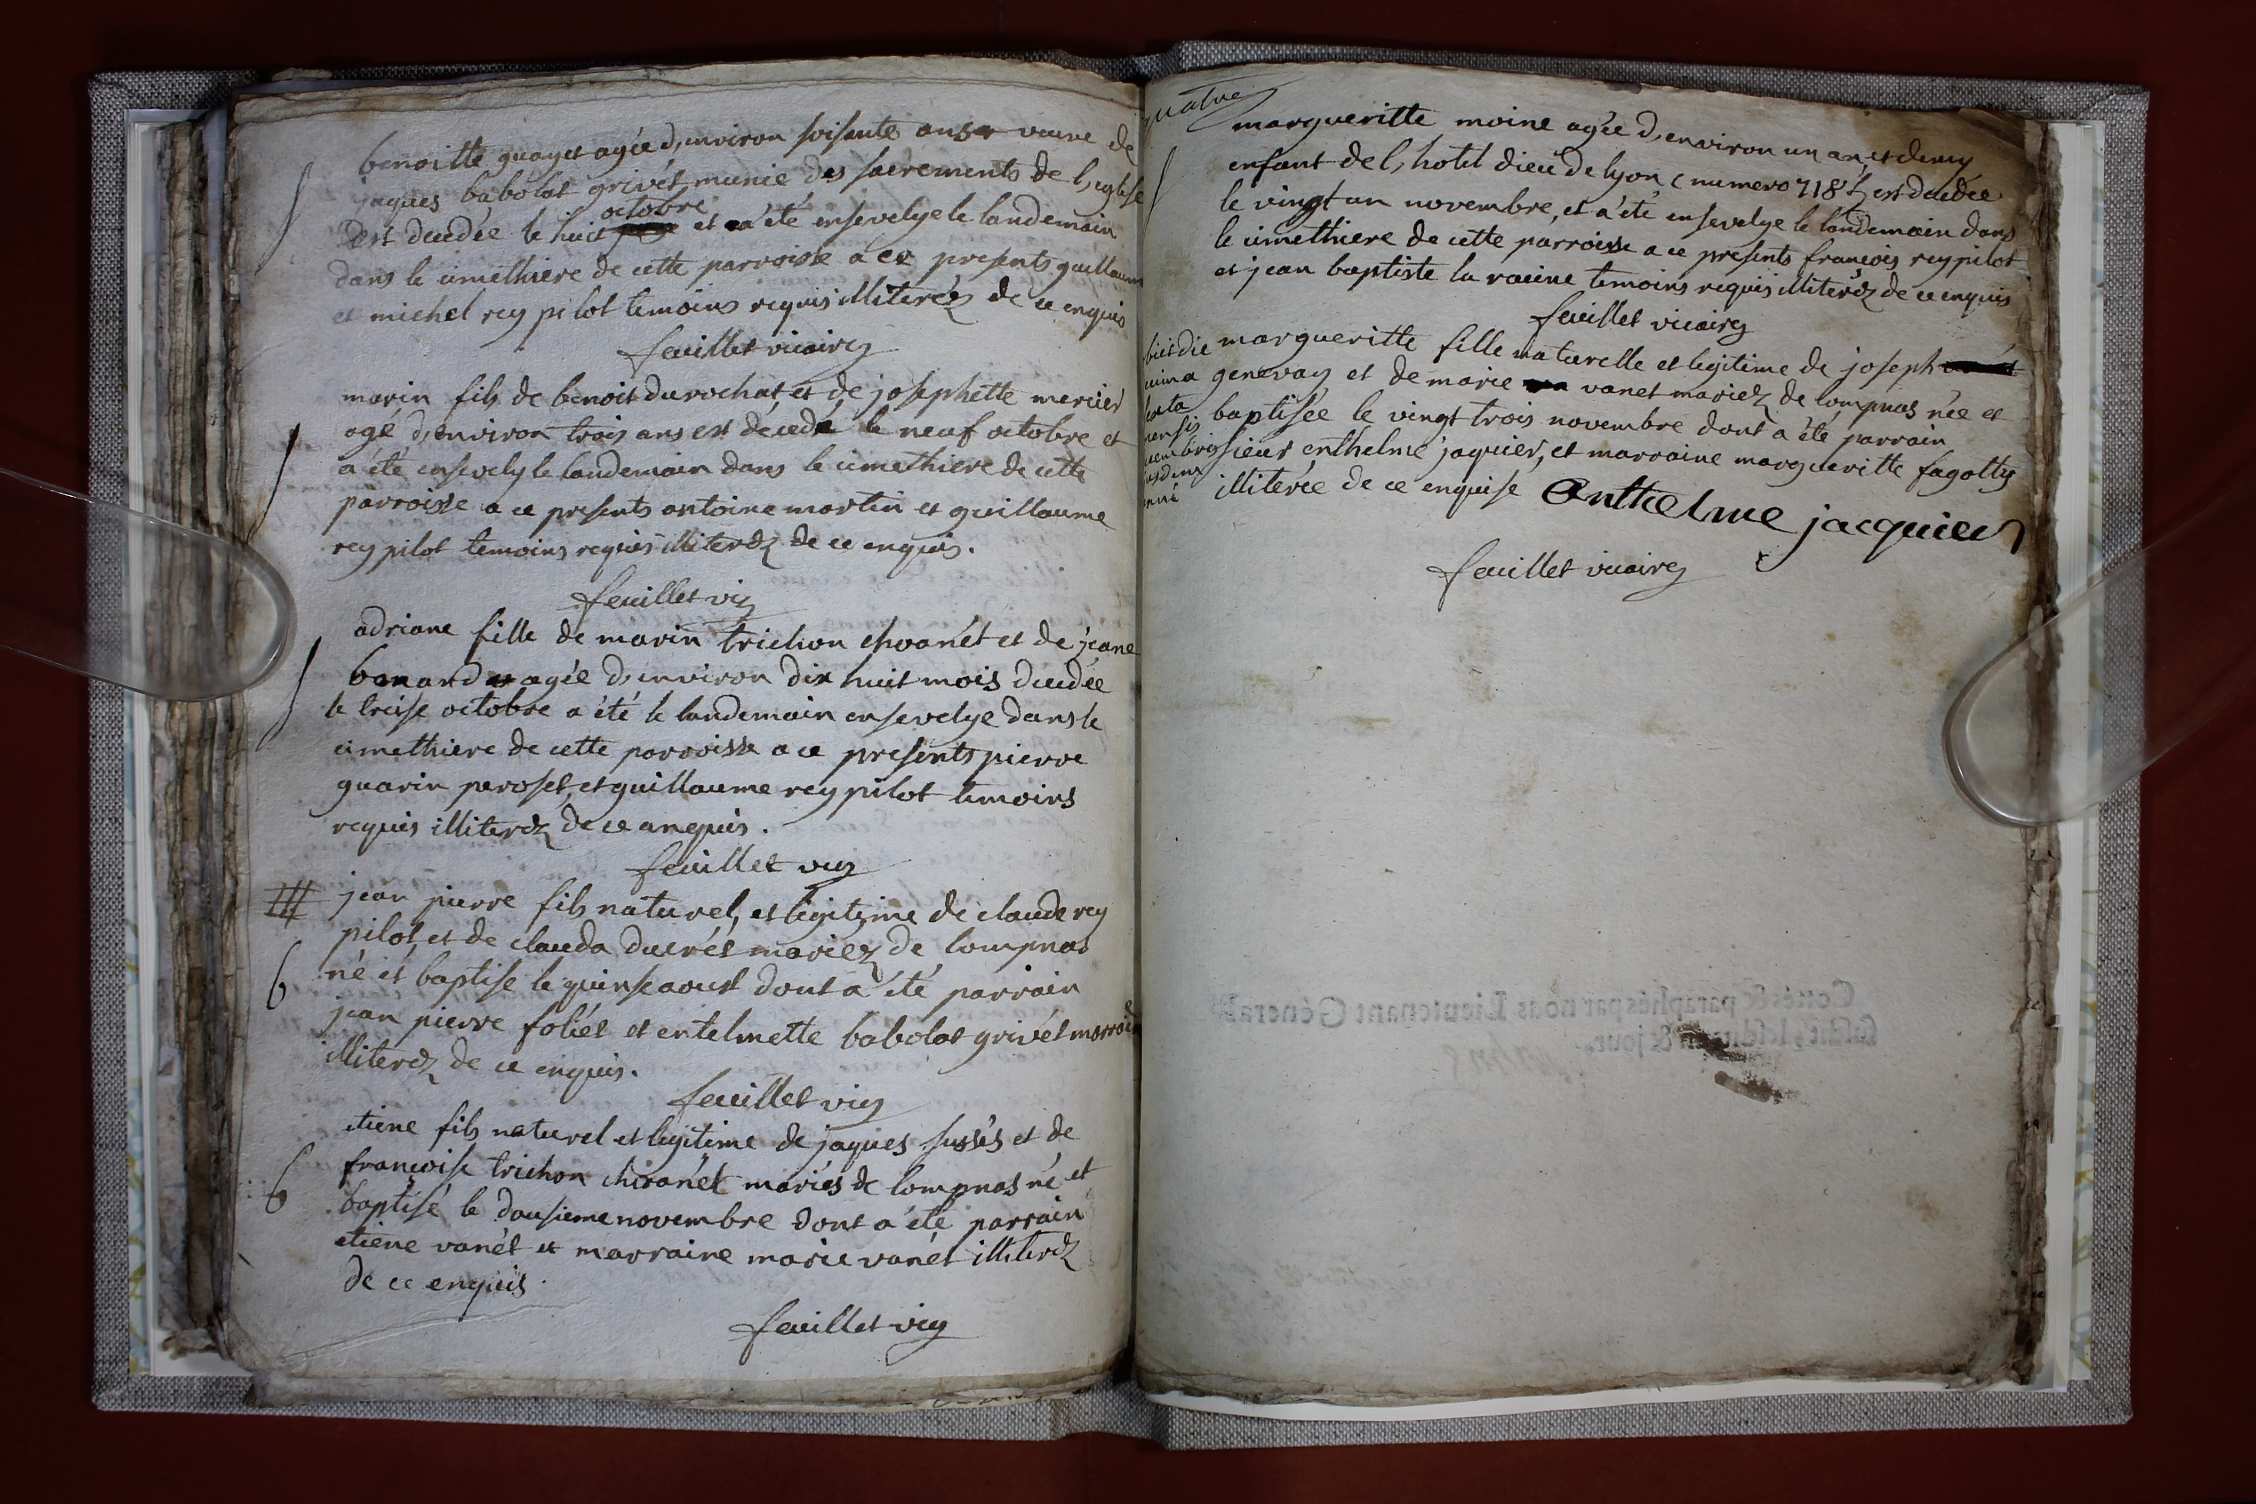 benoitte guayet agée d,environ soisente ans veuve de
jaques babolat grivét, munie des sacrements de l,eglise
est decedée le huit octobre et a été ensevelye le landemain
dans le cimethiere de cette parroisse a ce presents guillaume
et michel rey pilot temoins requis illiteréz de ce enquis
feuillet vicaire
marin fils de benoit durochat, et de josephette mercier
agé d,environ trois ans est décedé le neuf octobre et
a été ensevely le landemain dans le cimethiere de cette
parroisse a ce presents antoine martin et guillaume
rey pilot temoins requis illiteréz de ce enquis.
feuillet vic
adriane fille de marin trichon chvanét et de jeane
bonand agée d,environ dix huit mois decedée
le treise octobre a été le landemain ensevelye dans le
cimethiere de cette parroisse a ce presents pierre
guarin peroset, et guillaume rey pilot temoins
requis illiteréz de ce anquis.
feuillet vic
jean pierre fils naturel, et legitime de claude rey
pilot, et de clauda ducrét mariez de lompnas
6 né et baptise le quinse aoust dont a été parrain
jean pierre foliét et entelmette babolat grivét marraine
illiteréz de ce enquis.
feuillet vic
etiene fils naturel et legitime de jaques sussés et de
françoise trichon chvanét mariés de lompnas né et
6 baptisé le dousieme novembre dont a été parrain
etiene vanét et marraine marie vanét illiteréz
de ce enquis.
feuillet vic
quatre
margueritte moine agée d,environ un an, et demy
enfant de l,hotel dieu de lyon ( numero 718 ) est decedée
le vingt un novembre, et a été ensevelye le landemain dans
le cimethiere de cette parroisse a ce presents francois rey pilot
et jean baptiste la racine temoins requis illiteréz de ce enquis
feuillet vicaire
margueritte fille naturelle et legitime de joseph
genevay et de marie vanet mariez de lompnas née et
baptisée le vingt trois novembre dont a été parrain
sieur enthelme jaquier, et marraine margueritte fagotty
illiterée de ce enquise Anthelme jacquier
feuillet vicaire
Cottés & paraphés par nous Lieutenant Général
susdit, lesdits an & jour.